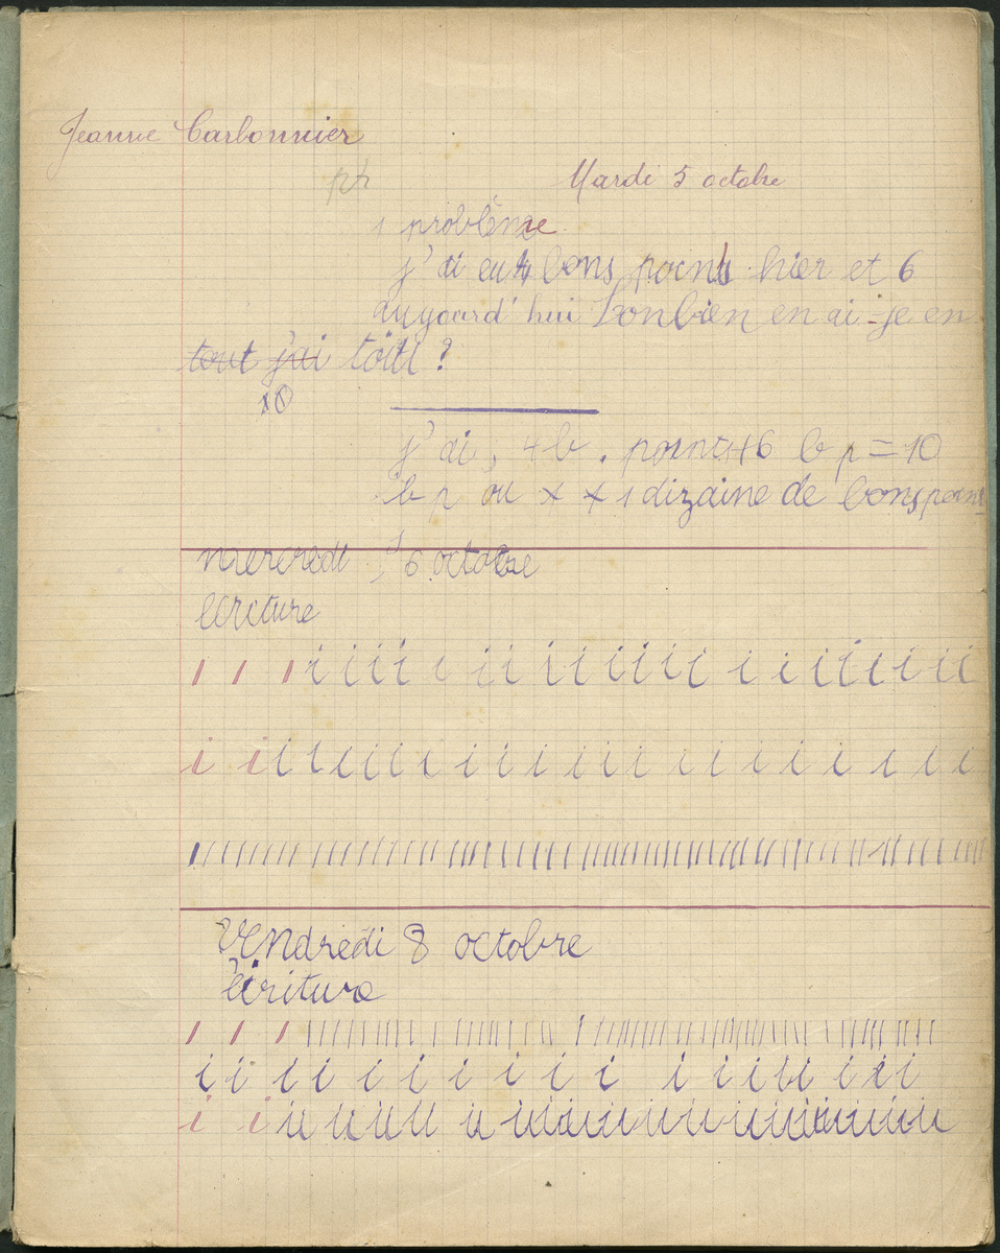 Jeanne Carbonnier
Mardi 5 octobre
1 problème
j'ai eu 4 bons points hier et 6
aujourd'hui Conbien en ai-je en
tout j'ai tout ?
10
j'ai, 4 b. points +6 b p = 10
b p ou x x 1 dizaine de bons points
mercredi, 6 octobre
écriture
ı ı ı i i i i i i i i i i i i i i i i i i i i
i i i i i i i i i i i i i i i i i i i i i i
Vendredi 8 octobre
écriture
i i i i i i i i i i i i i i i i i i
i i u u u u u u u u u u u u u u u u